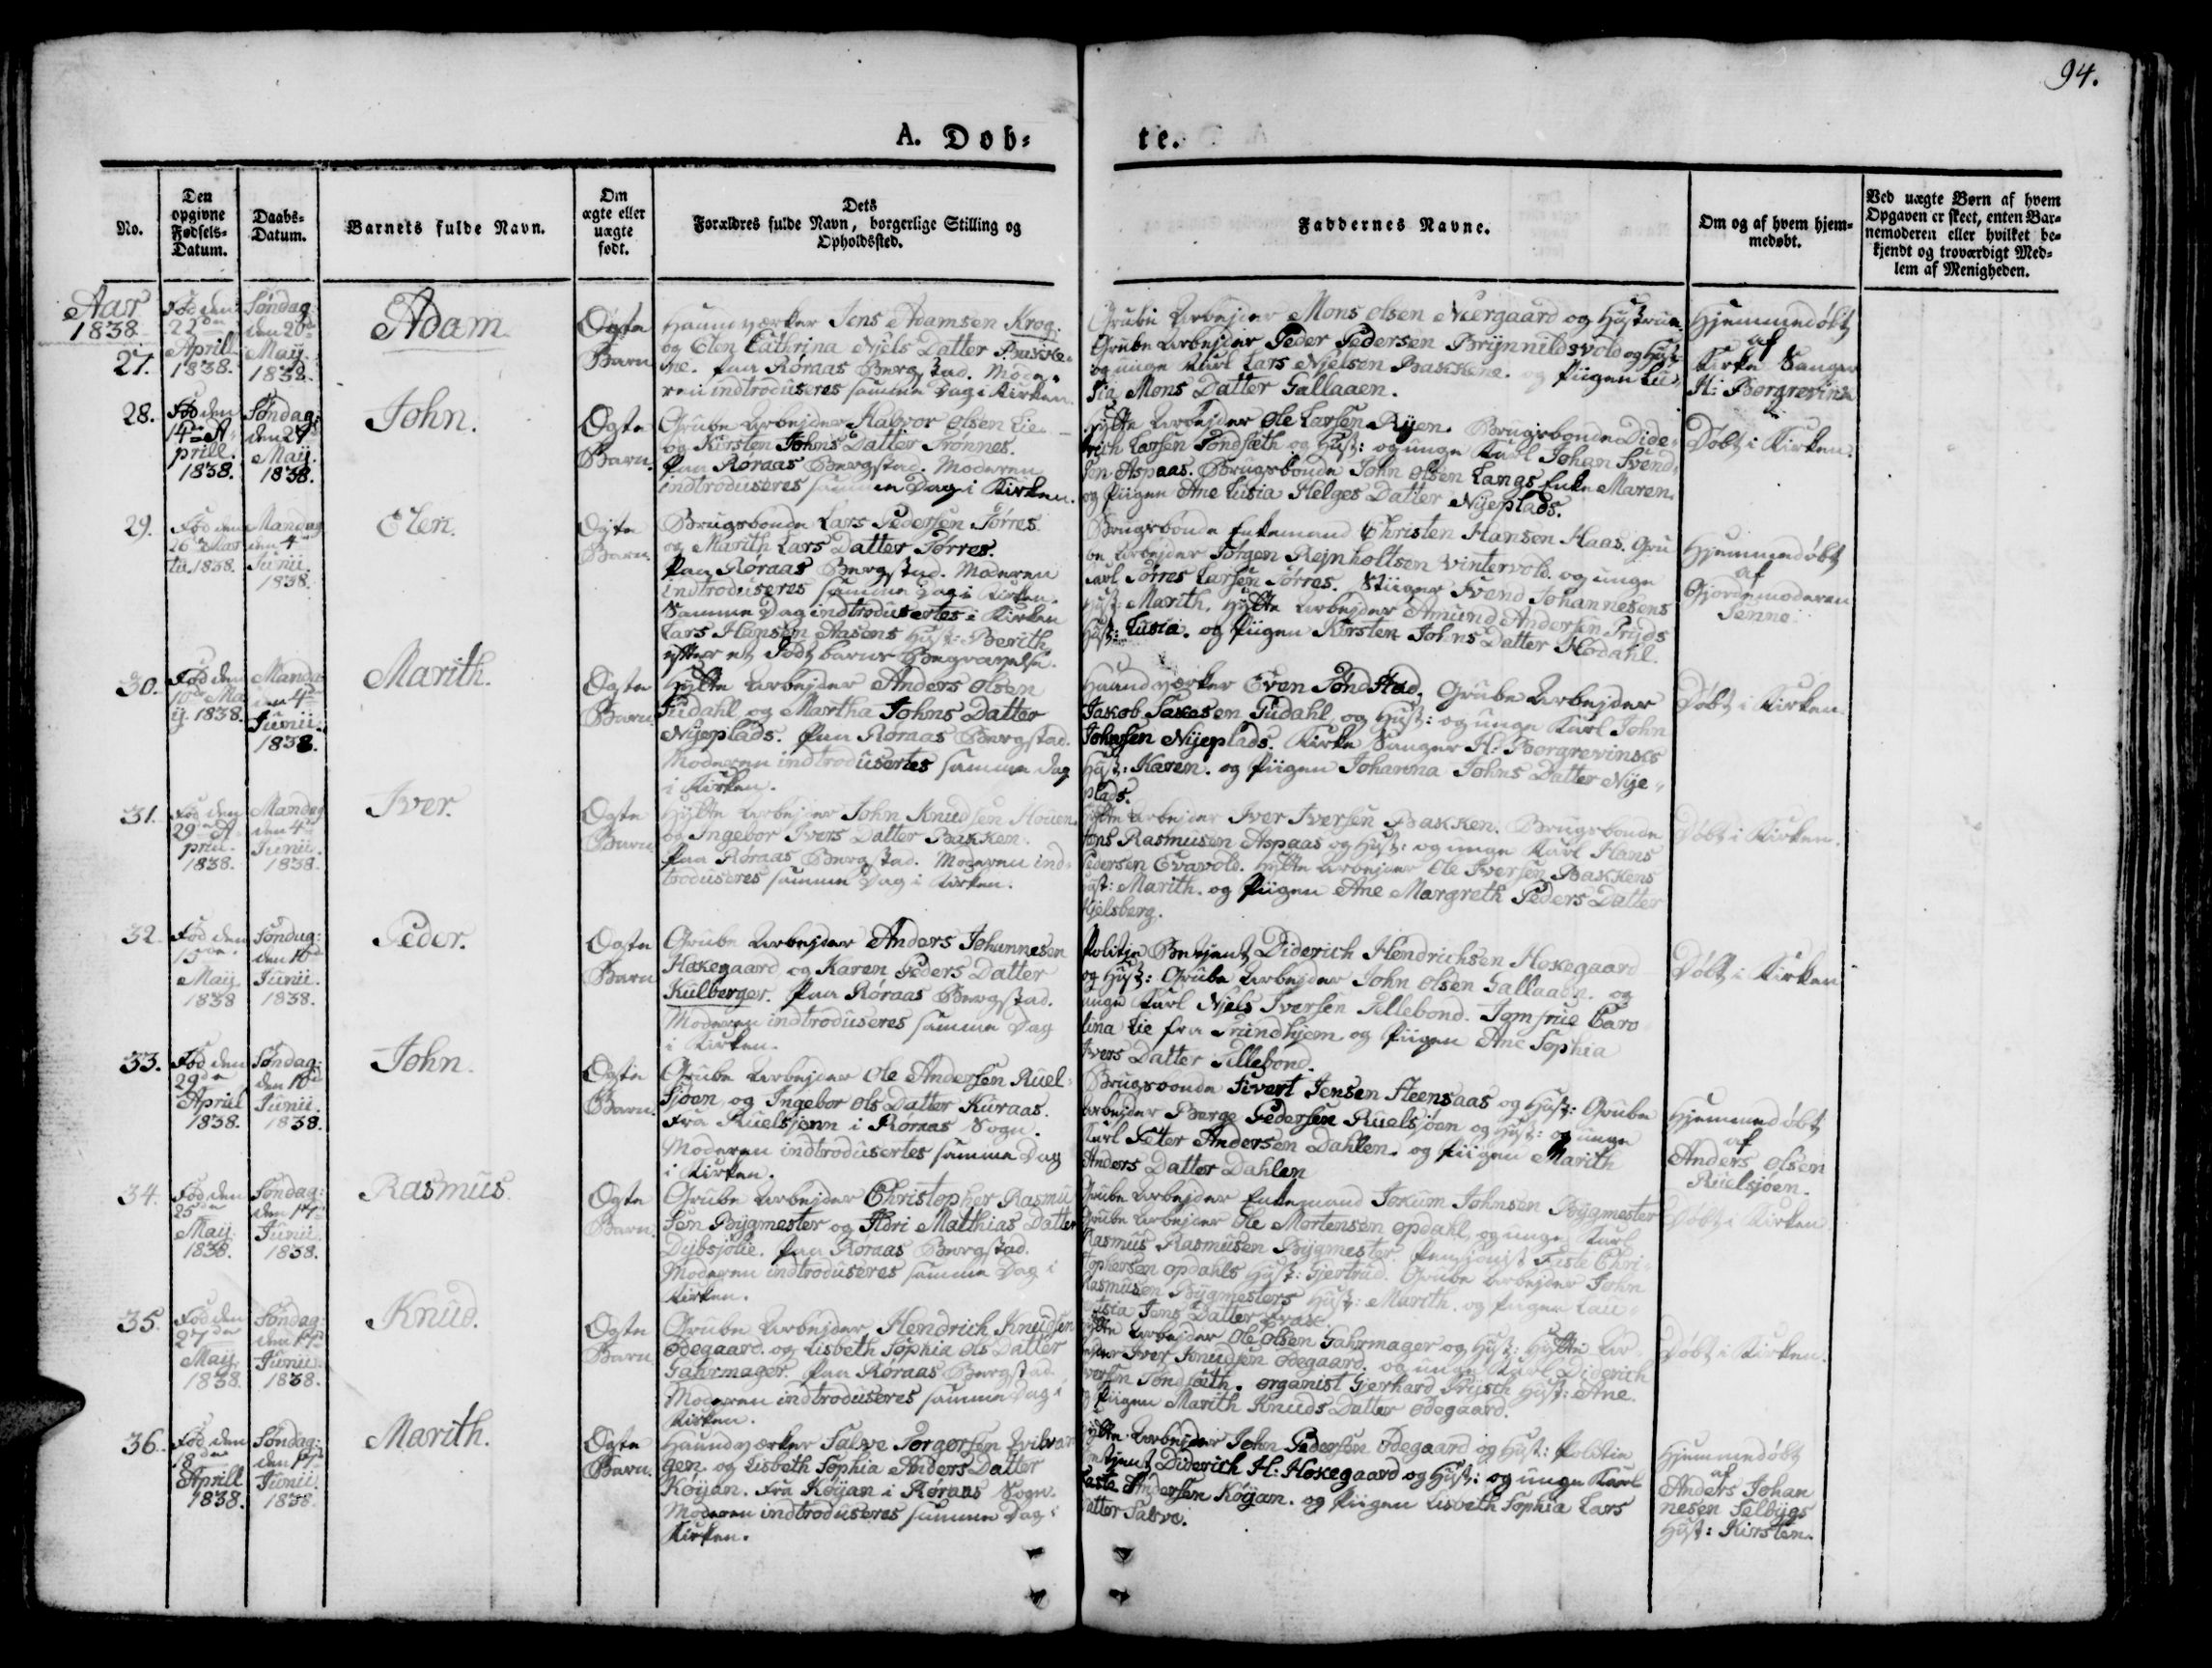 94.
A. Døb-
te.
No.
Den opgivne Fødsels-Datum.
Daabs-Datum.
Barnets fulde Navn.
Om ægte eller uægte født.
Dets Forældres fulde Navn, borgerlige Stilling og Opholdssted.
Faddernes Navne.
Om og af hvem hjem-medøbt.
Ved uægte Børn af hvem Opgaven er skeet, enten Bar-nemoderen eller hvilket be-kjendt og troværdigt Med-lem af Menigheden.
Aar
1838
27.
Fød den
22de
Aprill
1838.
Søndag
den 20de
Maij.
1838.
Adam
Ægte
Barn
Haandværker Jens Adamsen Krog.
og Elen Cathrina Njels Datter Bakke-
ne. Paa Røraas Bergstad. Mode-
ren indtroduseres samme Dag i Kirken.
Grube Arbejder Mons Olsen Neergaard og Hustrue.
Grube Arbejder Peder Pedersen Brynnildsvold og Hust:
og unge Karl Lars Njelsen Bakkene. og Piigen Lu-
sia Mons Datter Gallaaen.
Hjemmedøbt
af
Kirke Sanger
H: Borgrevink
28.
Fød den
14de A-
prill.
1838.
Søndag:
den 27de
Maij.
1838.
John.
Ægte
Barn.
Grube Arbejder Halvor Olsen Lie
og Kirsten Johns Datter Trønnes.
Paa Røraas Bergstad. Moderen
indtroduseres samme Dag i Kirken.
Hytte Arbejder Ole Larsen Ryen. Brugsbonde Dide-
rich Larsen Tøndsæth og Hust: og unge Karl Johan Svend-
sen Aspaas. Brugsbonde John Olsen Langs Enke Maren.
og Piigen Ane Lusia Helges Datter Nyeplads.
Døbt i Kirken.
29.
Fød den
26de Mar-
ta. 1838.
Mandag
den 4de
Junii.
1838.
Elen.
Ægte
Barn.
Brugsbonde Lars Pedersen Tørres
og Marith Lars Datter Tørres.
Paa Røraas Bergstad. Moderen
indtroduseres samme Dag i Kirken.
Samme Dag indtrodusertes i Kirken
Lars Hansen Aasens Hust: Berith
efter et Født barns Begravelse.
Brugsbonde Enkemand Christen Hansen Haas. Gru
be Arbejder Jørgen Rejnholtsen Vintervold. og unge
Karl Tørres Larsen Tørres. Stiiger Svend Johannesens
Hust: Marith. Hytte Arbejder Amund Andersen Pryds
Hust: Lusia. og Piigen Kirsten Johns Datter Hodahl.
Hjemmedøbt
af
Gjordemoderen
Senne
30.
Fød den
10de Ma
ij. 1838.
Mandag
den 4de
Junii.
1838.
Marith.
Ægte
Barn.
Hytte Arbejder Anders Olsen
Fudahl og Martha Johns Datter
Nyeplads. Paa Røraas Bergstad.
Moderen indtrodusertes samme dag
i Kirken.
Haandværker Even Tøndstad. Grube Arbejder
Jakob Jakesen Gudahl og Hust: og unge Karl John
Johnsen Nyeplads. Kirke Sanger H: Borgrevinks
Hust: Karen. og Piigen Johanna Johns Datter Nye-
plads.
Døbt i Kirken.
31.
Fød den
29de A
prill.
1838.
Mandag
den 4de
Junii.
1838.
Iver.
Ægte
Barn
Hytte Arbejder John Knudsen Houen.
og Ingebor Ivers Datter Bakken.
Paa Røraas Bergstad. Moderen ind-
troduseres samme Dag i Kirken.
Hytte Arbejder Iver Iversen Bakken. Brugsbonde
Jens Rasmusen Aspaas og Hust: og unge Karl Hans
Pedersen Evavold. Hytte Arbejder Ole Iversen Bakkens
Hust: Marith. og Piigen Ane Margreth Peders Datter
Hjelsberg.
Døbt i Kirken.
32.
Fød den
Maij
1838
Søndag:
den 10de
Junii.
1838.
Peder.
Ægte
Barn
Grube Arbejder Anders Johannesen
Hakegaard og Karen Peders Datter
Kulberger. Paa Røraas Bergstad.
Moderen indtroduseres samme Dag
i Kirken.
Politje Betjent Diderich Hendrichsen Hokegaard
og Hust: Grube Arbejder John Olsen Gallaaen. og
unge Karl Njels Iversen Tillebond. Jomfrue Caro
lina Lie fra Trundhjem og Piigen Ane Sophia
Ivers Datter Tillebond.
Døbt i Kirken
33.
Fød den
29de
Aprill
1838.
Søndag:
den 10de
Junii.
1838.
John.
Ægte
Barn.
Grube Arbejder Ole Andersen Ruel-
sjøen og Ingebor Ols Datter Kuraas.
fra Ruelsjønn i Røraas Sogn.
Moderen indtrodusertes samme Dag
i Kirken.
Brugsbonde Sivert Jensen Steensaas og Hust: Grube
Arbejder Berge Pedersen Ruelsjøen og Hust: og unge
Karl Peter Andersen Dahlen. og Piigen Marith
Anders Datter Dahlen
Hjemmedøbt
af
Anders Olsen
Ruelsjoen.
34.
Fød den
25de
Maij.
1838.
Søndag:
den 17de
Junii.
1838.
Rasmus.
Ægte
Barn.
Grube Arbejder Christopher Rasmu
sen Bygmester og Adri Matthias Datter
Dybsjolie. Paa Røraas Bergstad.
Moderen indtroduseres samme Dag i
Kirken.
Grube Arbejder Enkemand Jokum Johnsen Bygmester
Grube Arbejder Ole Mortensen Opdahl, og unge Karl
Rasmus Rasmusen Bygmester. Pensjonist Faste Chri-
stophersen Opdahls Hust: Gjertrud. Grube Arbejder John
Rasmusen Bygmesters Hust: Marith. og Piigen Lau-
Jens Datter
Døbt i Kirken
35.
Fød den
27de
Maij.
1838.
Søndag:
den 17de
Junii
1838.
Knud.
Ægte
Barn.
Grube Arbejder Hendrich Knudsen
Ødegaard. og Lisbeth Sophia Ols Datter
Gahrmager. Paa Røraas Bergstad.
Moderen indtroduseres samme Dag i
Kirken.
Hytte Arbejder Ole Olsen Gahrmager og Hust: Hytte Ar-
bejder Iver Knudsen Ødegaard. og unge Karl Diderich
Iversen Tøndsæth. Organist Gjerhard Prysch Hust: Ane.
og Piigen Marith Knuds Datter Ødegaard.
Døbt i Kirken.
36.
Fød den
18de
Aprill
1838.
Søndag:
den 17de
Junii.
1838.
Marith.
Ægte
Barn.
Haandværker Salve Torgersen
gen. og Lisbeth Sophia Anders Datter
Køyan. fra Køyan i Røraas Sogn.
Moderen indtroduseres samme Dag i
Kirken.
Hytte Arbejder John Pedersen Ødegaard og Hust: Politie
Betjent Diderich H: Hokegaard og Hust: og unge Karl
Faste Andersen Køyan. og Piigen Lisbeth Sophia Lars
Datter Salve.
Hjemmedøbt
af
Anders Johan
nesen Selbygs
Hust: Kirsten.